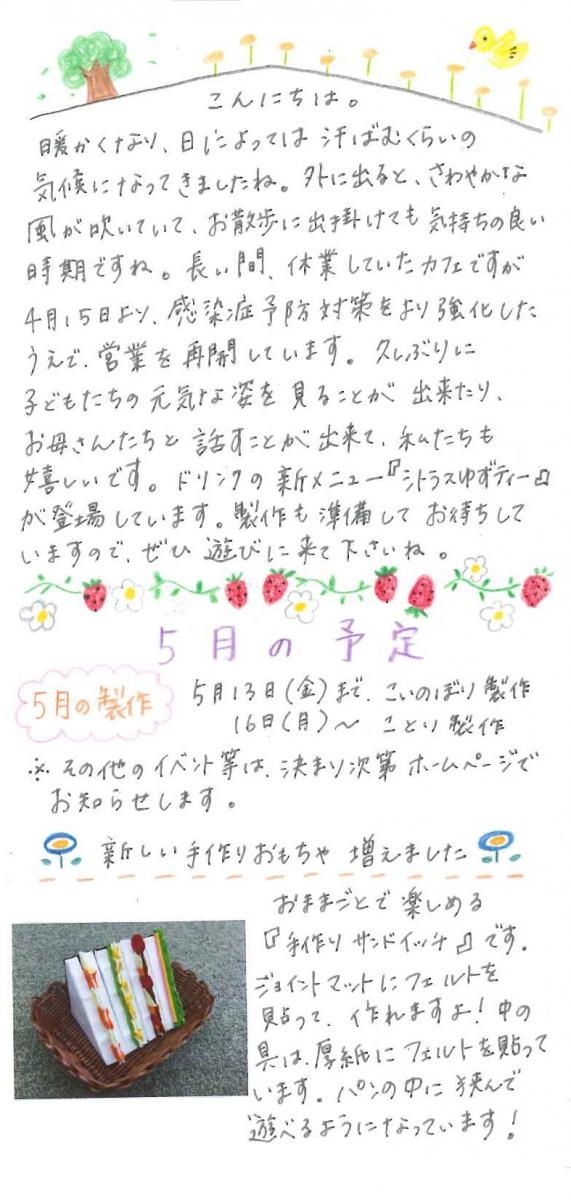 こんにちは。
暖かくなり、日によっては汗ばむくらいの
気候になってきましたね。外に出ると、さわやかな
風が吹いていて、お散歩に出掛けても気持ちの良い
時期ですね。長い間、休業していたカフェですが
4月15日より、感染症予防対策をより強化した
うえで、営業を再開しています。久しぶりに
子どもたちの元気な姿を見ることが出来たり、
お母さんたちと話すことが出来て、私たちも
嬉しいです。ドリンクの新メニュー『シトラスゆずティー』
が登場しています。製作も準備してお待ちして
いますので、ぜひ遊びに来て下さいね。
5月の予定
5月の製作
5月13日(金)まで、こいのぼり製作
16日(月)〜 ことり製作
※その他のイベント等は、決まり次第ホームページで
お知らせします。
新しい手作りおもちゃ 増えました
おままごとで楽しめる
『手作りサンドイッチ』です。
ジョイントマットにフェルトを
貼って、作れますよ!中の
具は、厚紙にフェルトを貼って
います。パンの中に挟んで
遊べるようになっています!